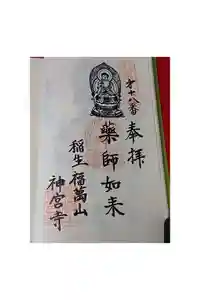 才十八番
奉拝
藥師如来
稲生福萬山
神宮寺